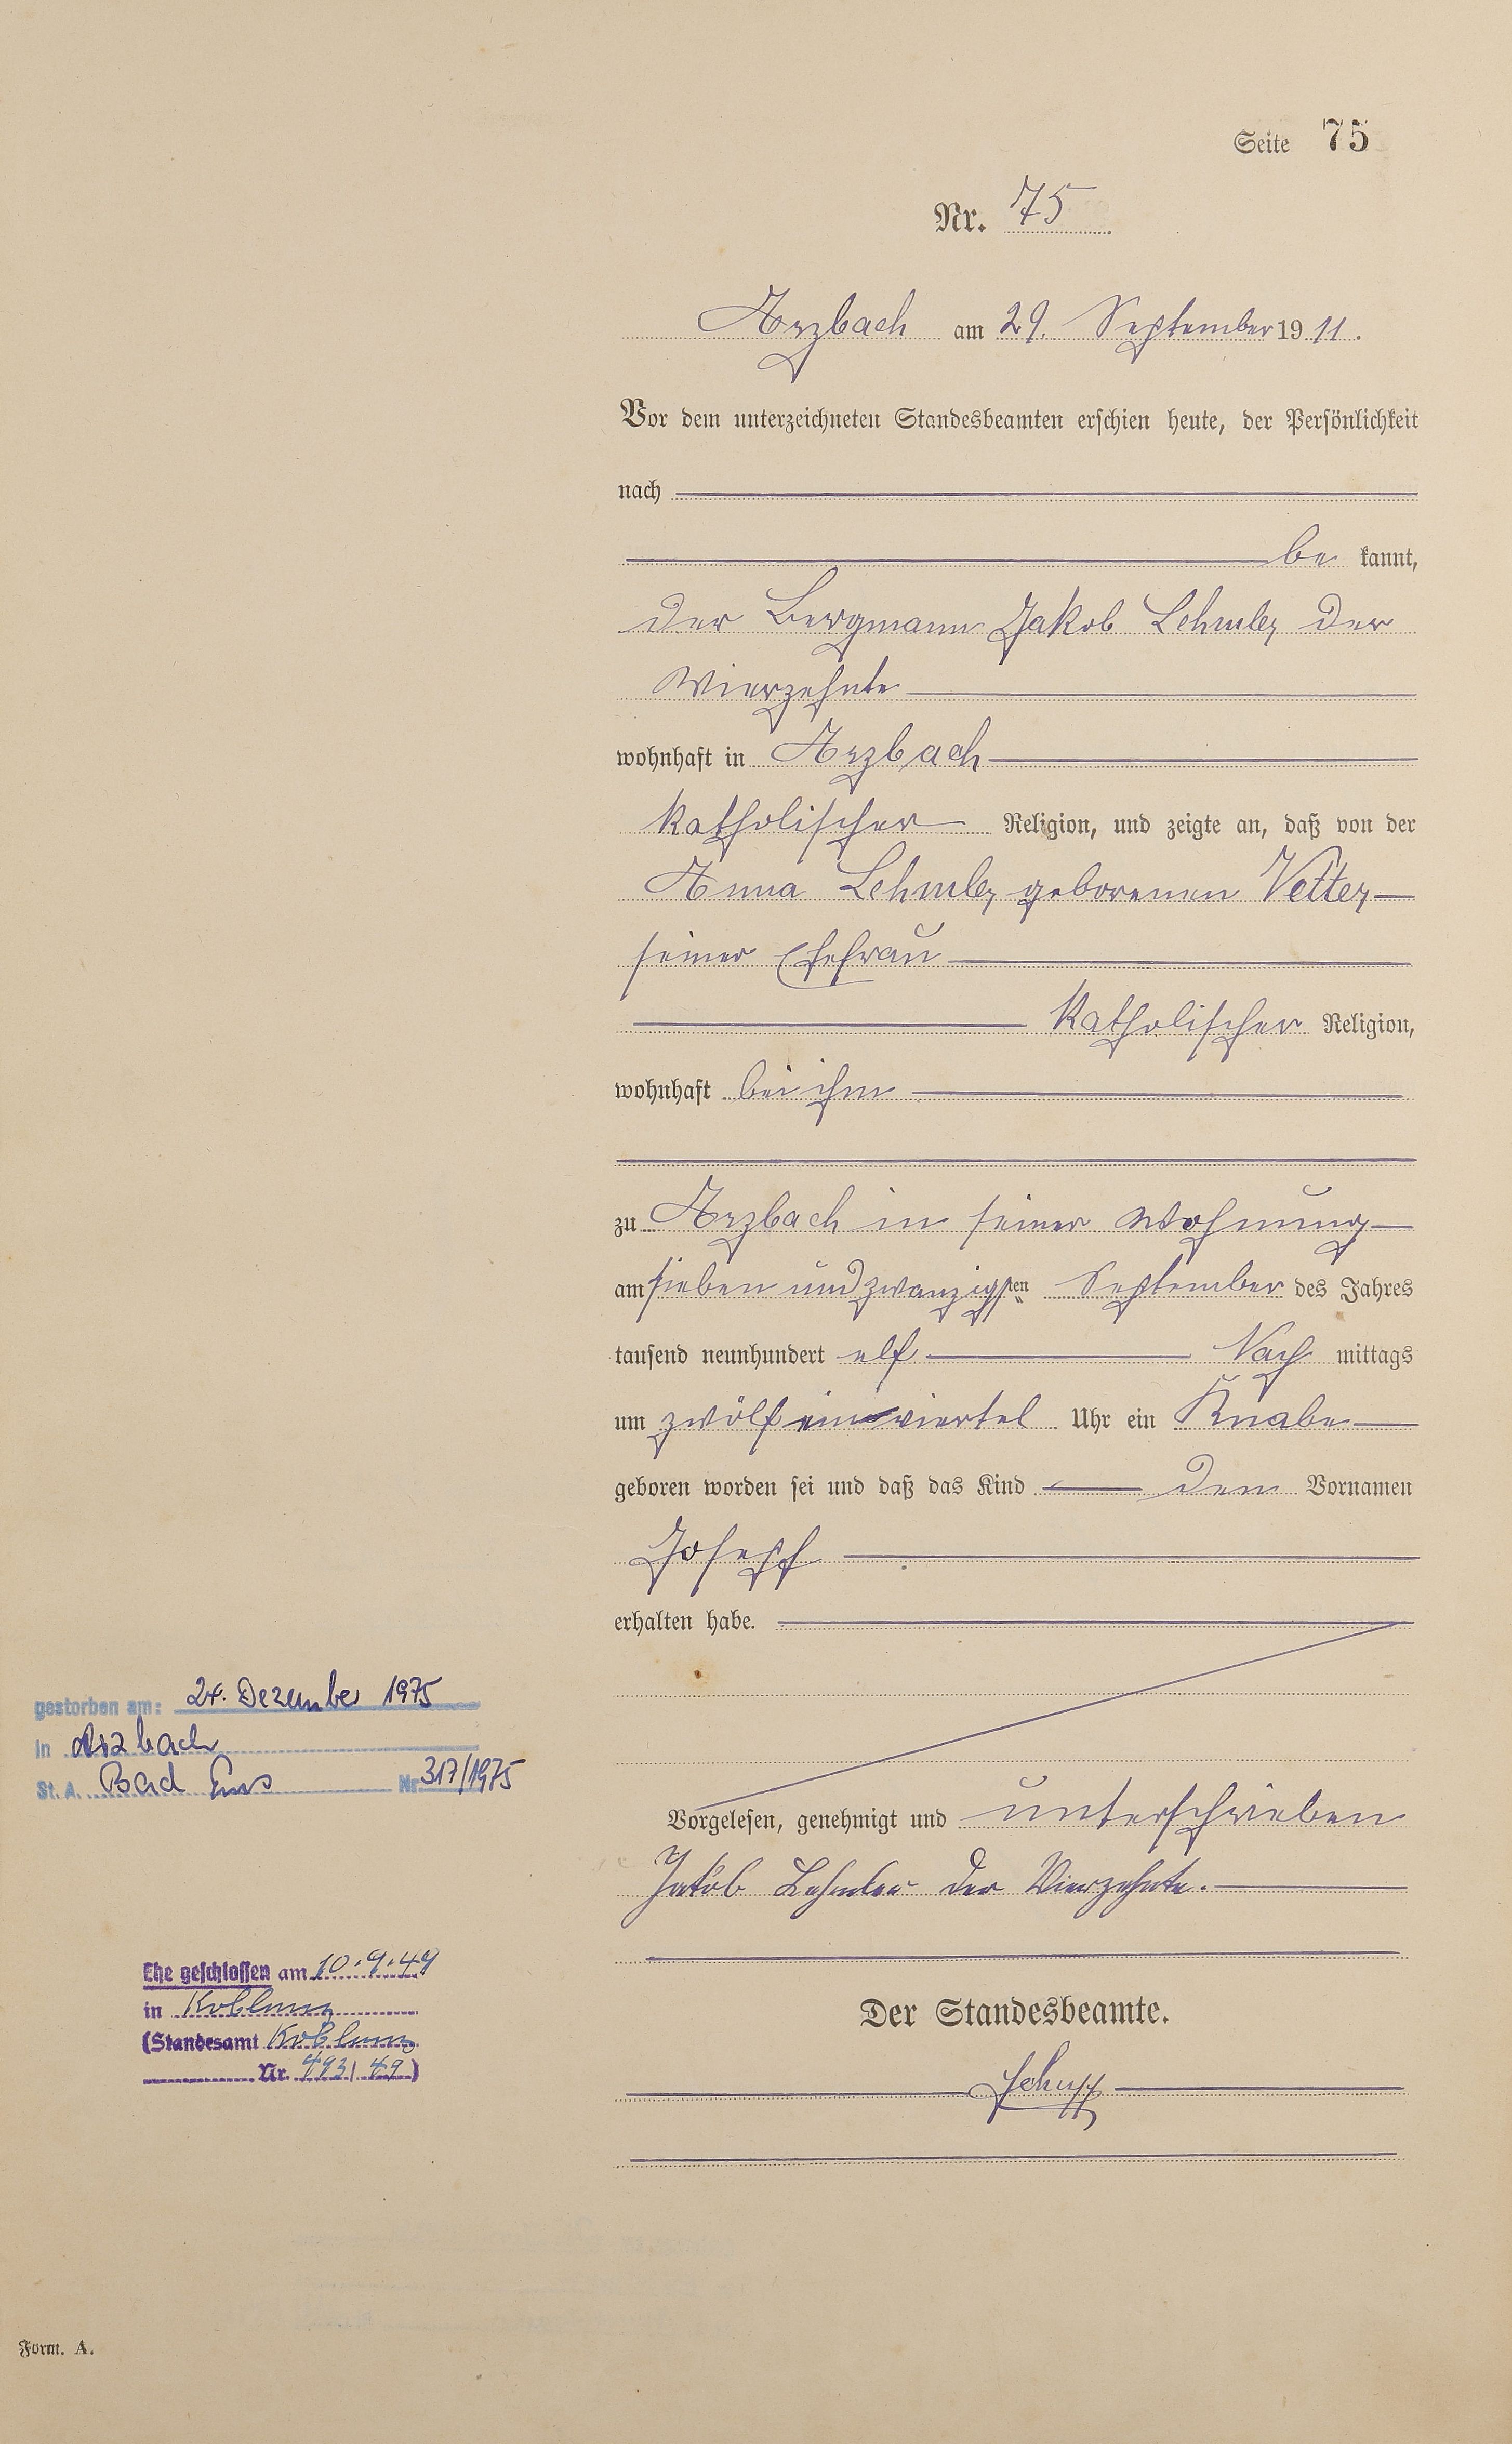 Seite 75
Nr. 75
Arzbach am 29. September 1911.
Vor dem unterzeichneten Standesbeamten erschien heute, der Persönlichkeit
nach
be kannt,
der Bergmann Jakob Lehmler der
Vierzehnte
wohnhaft in Arzbach
katholischer Religion, und zeigte an, daß von der
Anna Lehmler geborenen Vetter
seiner Ehefrau
katholischer Religion,
wohnhaft bei ihm
zu Arzbach in seiner Wohnung
am sieben und zwanzigsten September des Jahres
tausend neunhundert elf Nach mittags
um zwölf einviertel Uhr ein Knabe
geboren worden sei und daß das Kind den Vornamen
Joseph
erhalten habe.
Vorgelesen, genehmigt und unterschrieben
Jakob Lehmler der Vierzehnte.
Der Standesbeamte.
Schupp
gestorben am: 24. Dezember 1975
in Arzbach
St. A. Bad Ems Nr. 317/1975
Ehe geschlossen am 10.9.49
in Koblenz
(Standesamt Koblenz
Nr. 493/49)
Form. A.